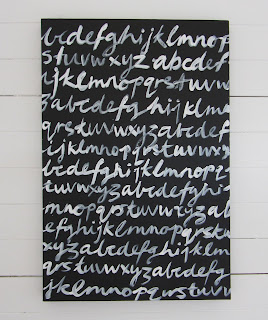 abcdefghijklmnop
stuvwxyz abcdef
ijklmnopqrstuvw
zabcdefghijklm
qrstuvwxyzabcdef
ijklmnopqrstuvw
abcdefghijklmnop
stuvwxyzabcdefghi
mnopqrstuvwxyz
efghijklmnopqrstu
xyzabcdefghijklm
qrstuvwxyzabcdef
ijklmnopqrstuv